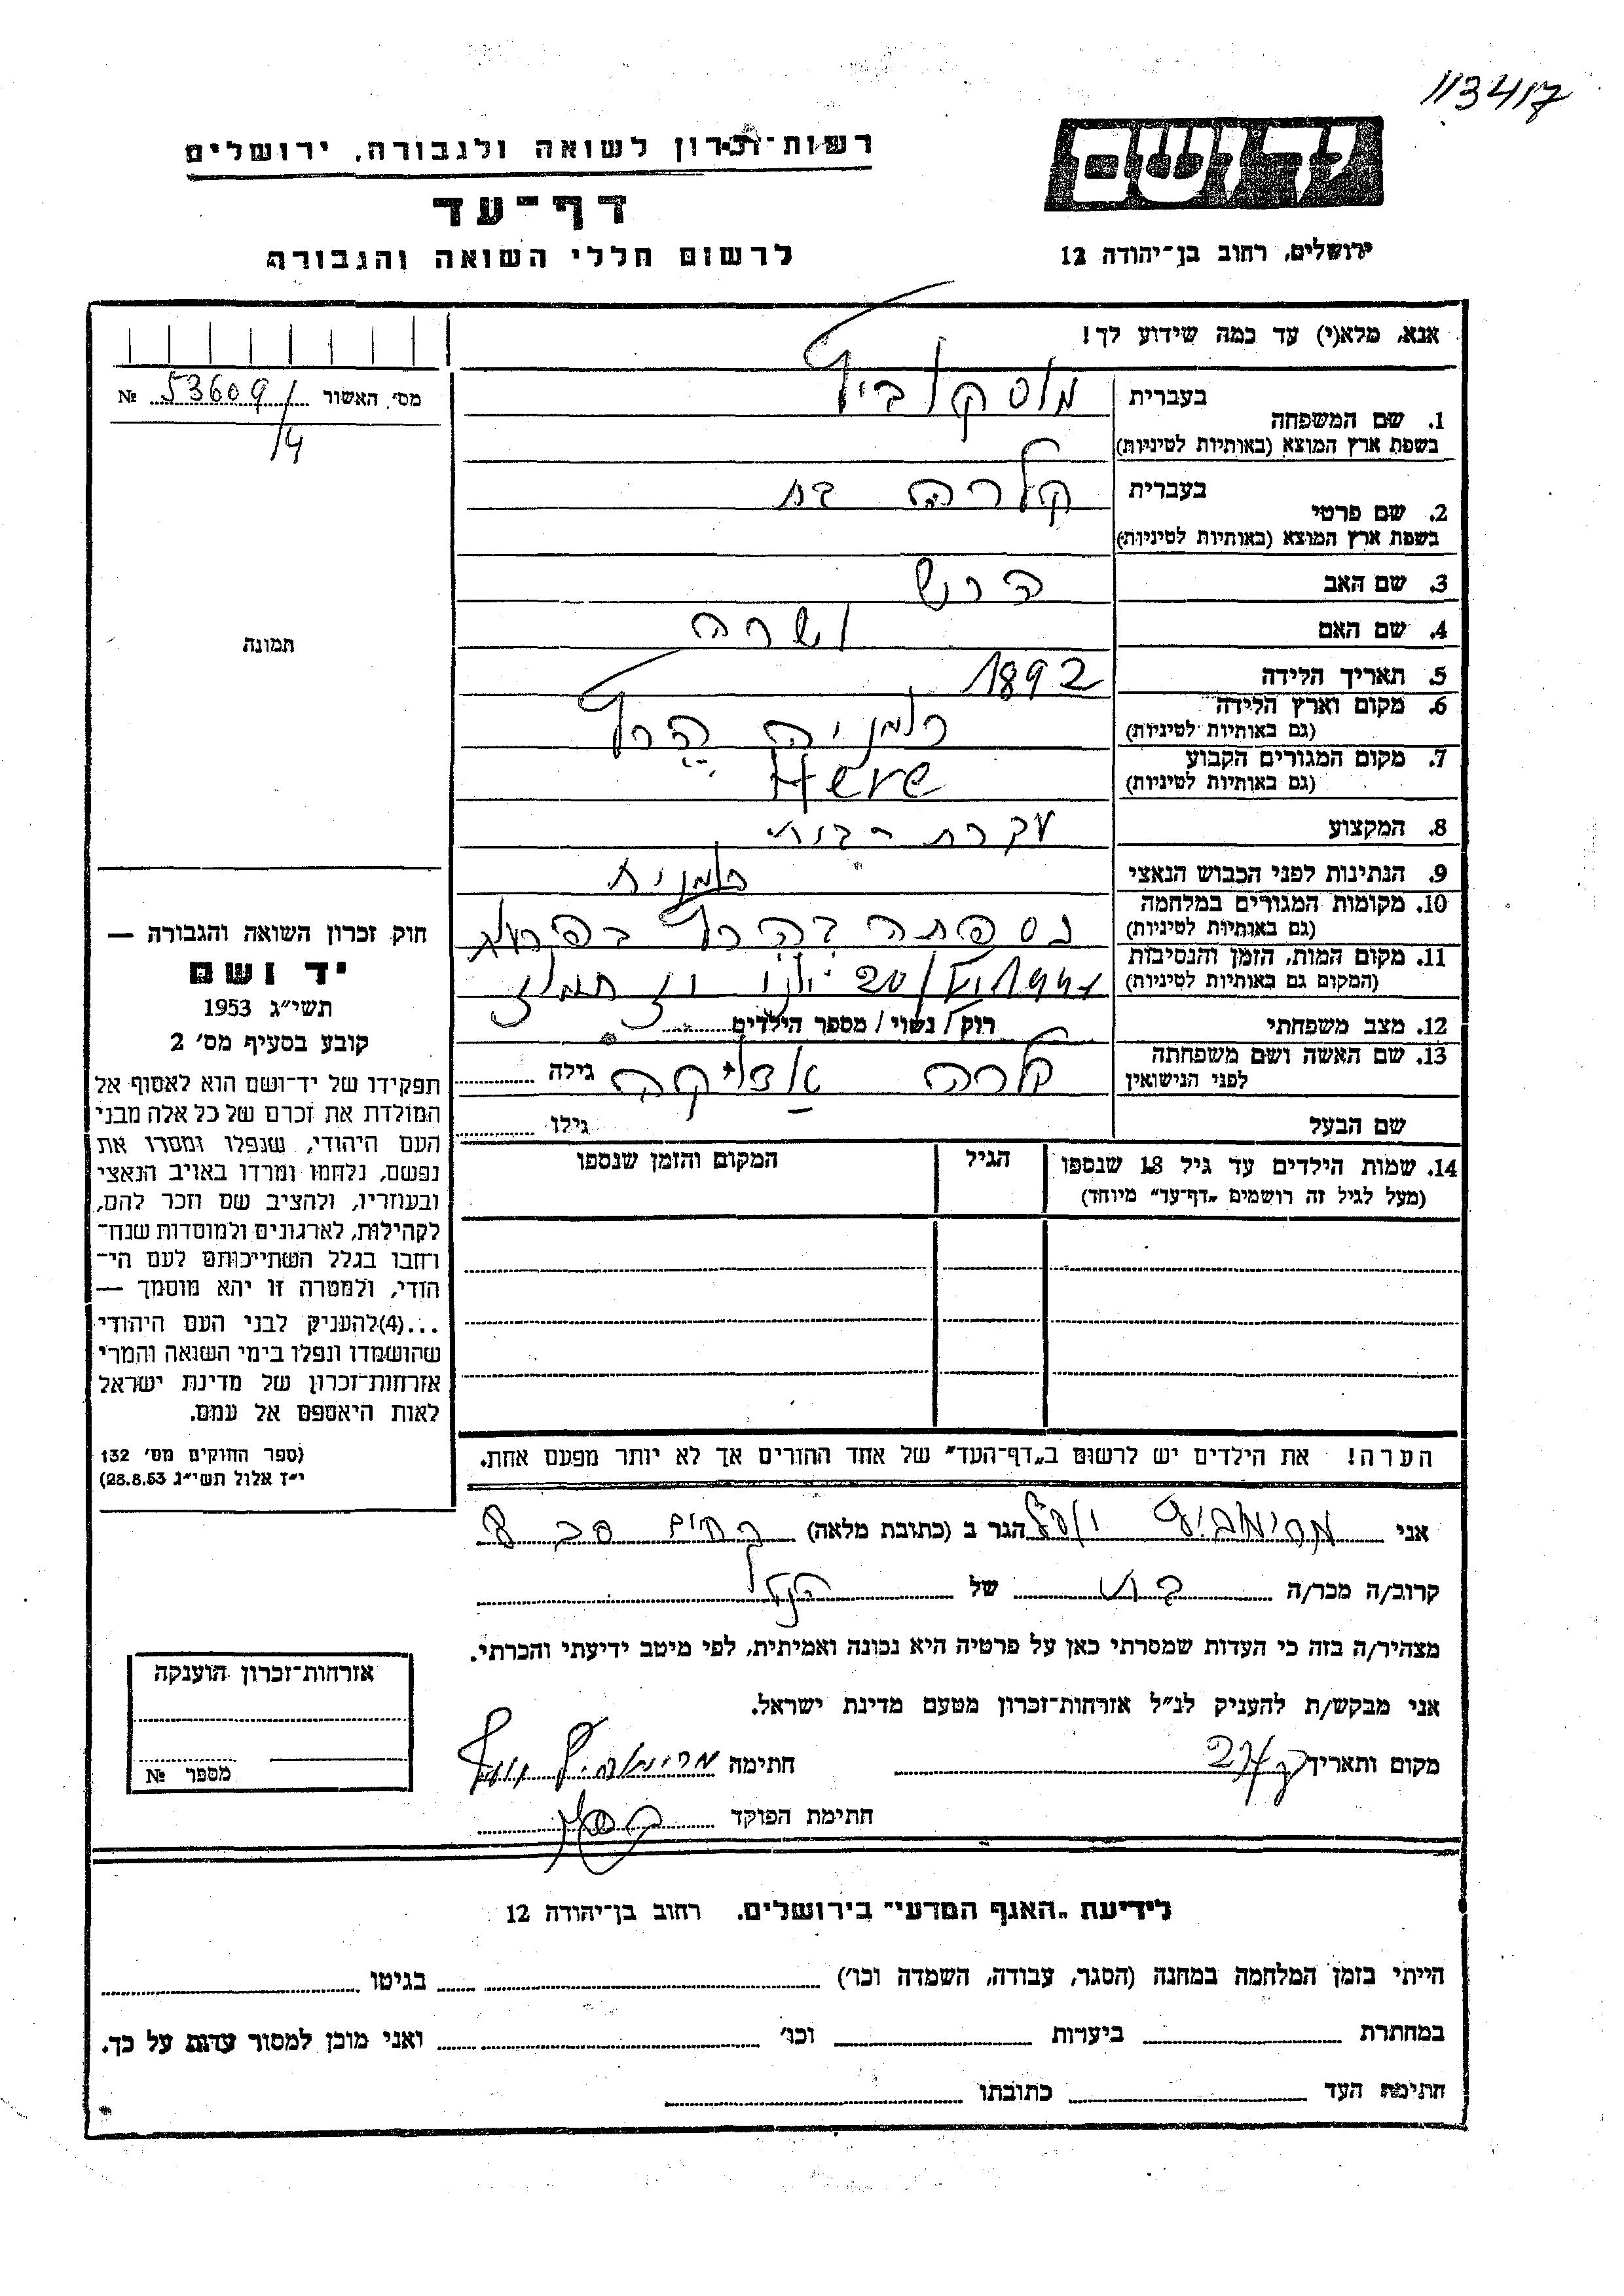 113417
יד ושם
רשות־זכרון לשואה ולגבורה, ירושלים
דף־עד
לרשום חללי השואה והגבורה
ירושלים, רחוב בן־יהודה 12
אנא, מלא(י) עד כמה שידוע לך!
מס׳ האשור № 53609/4
1. שם המשפחה
בעברית מוסקוביץ
בשפת ארץ המוצא (באותיות לטיניות)
2. שם פרטי
בעברית קלרה בת
בשפת ארץ המוצא (באותיות לטיניות)
3. שם האב הרש
4. שם האם ושרה
5. תאריך הלידה 1892
6. מקום וארץ הלידה רומניה
(גם באותיות לטיניות)
7. מקום המגורים הקבוע
(גם באותיות לטיניות)
8. המקצוע עקרת בית
9. הנתינות לפני הכבוש הנאצי רומנית
10. מקומות המגורים במלחמה נספתה
(גם באותיות לטיניות)
11. מקום המות, הזמן והנסיבות
(המקום גם באותיות לטיניות)
12. מצב משפחתי רוק / נשוי / מספר הילדים
13. שם האשה ושם משפחתה קלרה
לפני הנישואין
גילה
שם הבעל גילו
14. שמות הילדים עד גיל 18 שנספו
(מעל לגיל זה רושמים „דף־עד״ מיוחד)
הגיל
המקום והזמן שנספו
הערה! את הילדים יש לרשום ב„דף־העד״ של אחד ההורים אך לא יותר מפעם אחת.
תמונה
חוק זכרון השואה והגבורה —
יד ושם
תשי״ג 1953
קובע בסעיף מס׳ 2
תפקידו של יד־ושם הוא לאסוף אל
המולדת את זכרם של כל אלה מבני
העם היהודי, שנפלו ומסרו את
נפשם, נלחמו ומרדו באויב הנאצי
ובעוזריו, ולהציב שם וזכר להם,
לקהילות, לארגונים ולמוסדות שנח־
רחבו בגלל השתייכותם לעם הי־
הודי, ולמטרה זו יהא מוסמך —
...(4)להעניק לבני העם היהודי
שהושמדו ונפלו בימי השואה והמרי
אזרחות־זכרון של מדינת ישראל
לאות היאספם אל עמם.
(ספר החוקים מס׳ 132
י״ז אלול תשי״ג 28.8.53)
אני הגר ב (כתובת מלאה) 8
קרוב/ה מכר/ה בת של הנ״ל
מצהיר/ה בזה כי העדות שמסרתי כאן על פרטיה היא נכונה ואמיתית, לפי מיטב ידיעתי והכרתי.
אני מבקש/ת להעניק לנ״ל אזרחות־זכרון מטעם מדינת ישראל.
מקום ותאריך חתימה
חתימת הפוקד
אזרחות־זכרון הוענקה
מספר №
לידיעת „האגף המדעי״ בירושלים. רחוב בן־יהודה 12
הייתי בזמן המלחמה במחנה (הסגר, עבודה, השמדה וכו׳) בגיטו
במחתרת ביערות וכו׳ ואני מוכן למסור עדות על כך.
חתימת העד כתובתו